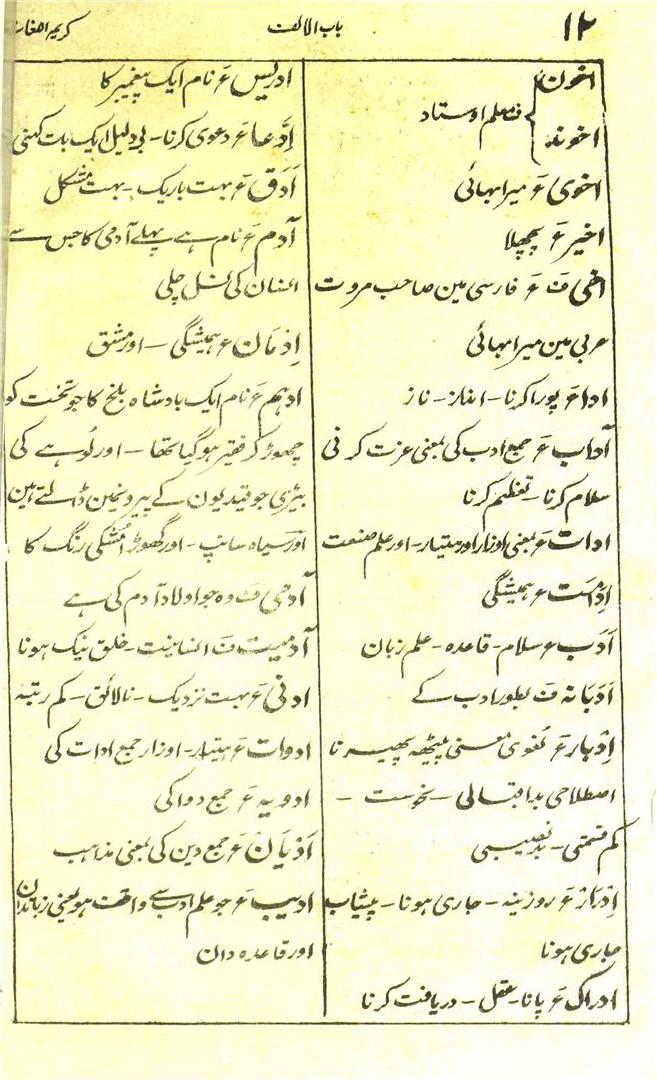 ۱۲
باب الالف
کریم اللغات
اخون
اخوند
ف معلم اوستاد
اخوی ع میرا بهائی
اخیر ع پچھلا
اخی ف ع فارسی مین صاحب مروت
عربی مین میرا بهائی
ادا ع پورا کرنا - انداز - ناز
آداب ع جمع ادب کی بمعنی عزت کرنی
سلام کرنا - تعظیم کرنا
ادات ع بمعنی اوزار اور ہتیار - اور علم صنعت
اِدامت ع ہمیشگی
اَدَب ع سلام - قاعدہ - علم زبان
اَدَبانہ ف بطور ادب کے
اِدْبار ع لُغوی معنی پیٹھ پھیرنا
اصطلاحی بداقبالی - نحوست -
کم قسمتی - بدنصیبی
اِدْرار ع روزینہ - جاری ہونا - پیشاب
جاری ہونا
ادراک ع پانا - عقل - دریافت کرنا
ادریس ع نام ایک پیغمبر کا
اِدَّعا ع دعوی کرنا - بی دلیل ایک بات کہنی
اَدَق ع بہت باریک - بہت مشکل
آدم ع نام ہے پہلے آدمی کا جس سے
انسان کی نسل چلی
اِدْمان ع ہمیشگی - اور مشق
ادہم ع نام ایک بادشاہ بلخ کا جو تخت کو
چھوڑ کر فقیر ہو گیا تھا - اور لوہے کی
بیڑی جو قیدیون کے پیرونمین ڈالتے ہین
اور سیاہ سانپ - اور گھوڑا مُشکی رنگ کا
آدمی ف وہ جو اولاد آدم کی ہے
آدمیت ف انسانیت - خلق نیک ہونا
ادنی ع بہت نزدیک - نالائق - کم رتبہ
ادوات ع ہتیار - اوزار جمع ادات کی
ادویہ ع جمع دوا کی
اَدْیان ع جمع دین کی بمعنی مذاہب
ادیب ع جو علم ادب سے واقف ہو یعنی زباندان
اور قاعدہ دان